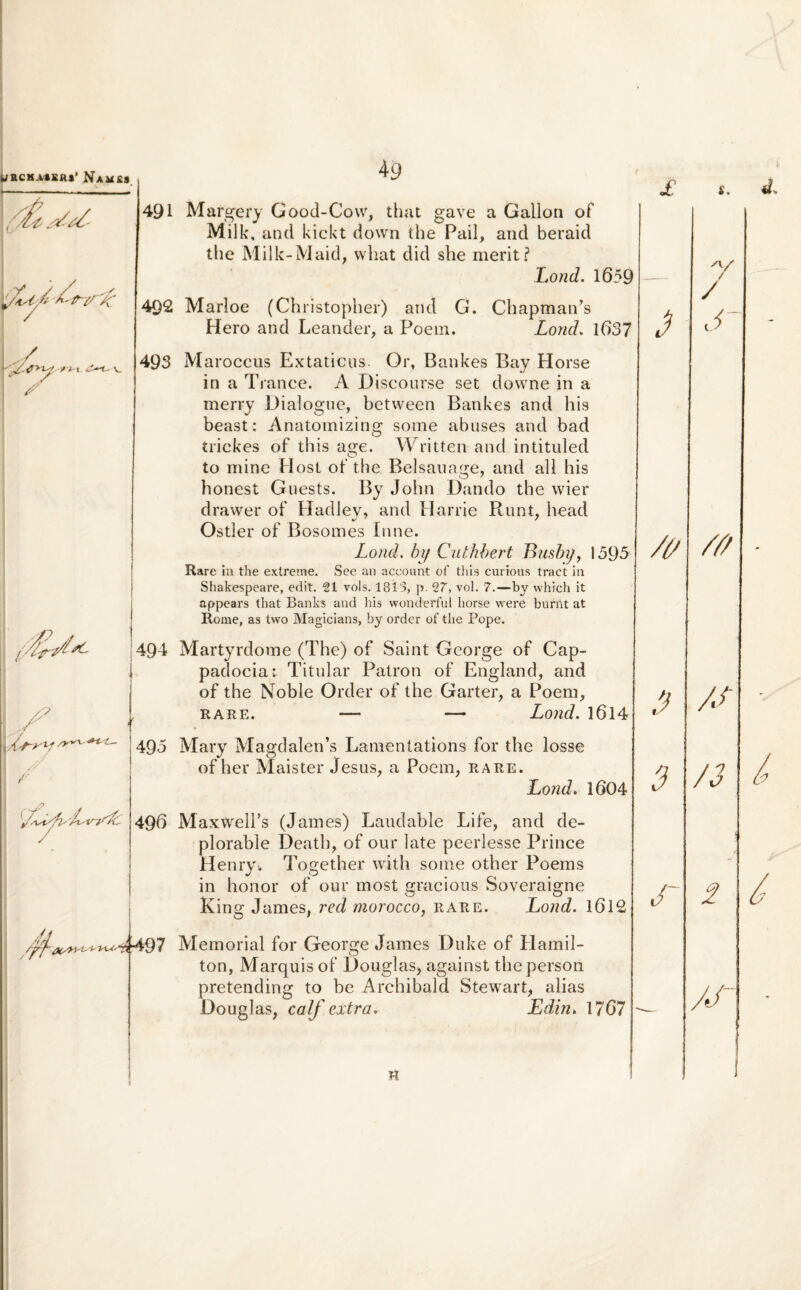 49
URCHASERS' NAMES
£ s. d.
491 Margery Good-Cow, that gave a Gallon of
Milk, and kickt down the Pail, and beraid
the Milk-Maid, what did she merit?
Lond. 1659
7
492 Marloe (Christopher) and G. Chapman's
Hero and Leander, a Poem. Lond. 1637
3 5
493 Maroccus Extaticus. Or, Bankes Bay Horse
in a Trance. A Discourse set downe in a
merry Dialogue, between Bankes and his
beast: Anatomizing some abuses and bad
trickes of this age. Written and intituled
to mine Host of the Belsauage, and all his
honest Guests. By John Dando the wier
drawer of Hadley, and Harrie Runt, head
Ostler of Bosomes Inne.
Lond. by Cuthbert Busby, 1595
10 10
Rare in the extreme. See an account of this curious tract in
Shakespeare, edit. 21 vols. 1813, p. 27, vol. 7.—by which it
appears that Banks and his wonderful horse were burnt at
Rome, as two Magicians, by order of the Pope.
494 Martyrdome (The) of Saint George of Cap-
padocia: Titular Patron of England, and
of the Noble Order of the Garter, a Poem,
RARE. — — Lond. 1614
3 15
495 Mary Magdalen's Lamentations for the losse
of her Maister Jesus, a Poem, RARE.
Lond. 1604
3 13 6
496 Maxwell's (James) Laudable Life, and de-
plorable Death, of our late peerlesse Prince
Henry. Together with some other Poems
in honor of our most gracious Soveraigne
King James, red morocco, RARE. Lond. 1612
5 2 6
497 Memorial for George James Duke of Hamil-
ton, Marquis of Douglas, against the person
pretending to be Archibald Stewart, alias
Douglas, calf extra. Edin. 1767
15
H